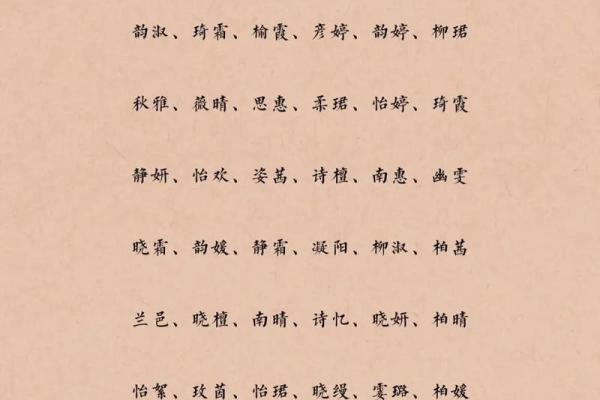 韵淑、琦霜、榆霞、彦婷、韵婷、柳珺
秋雅、薇晴、思惠、柔珺、怡婷、琦霞
静妍、怡欢、姿茜、诗檀、南惠、幽雯
晓霜、韵媛、静霜、凝阳、柳淑、柏茜
兰邑、晓檀、南晴、诗忆、晓妍、柏晴
怡絮、玫茵、怡珺、晓缦、雯璐、柏媛